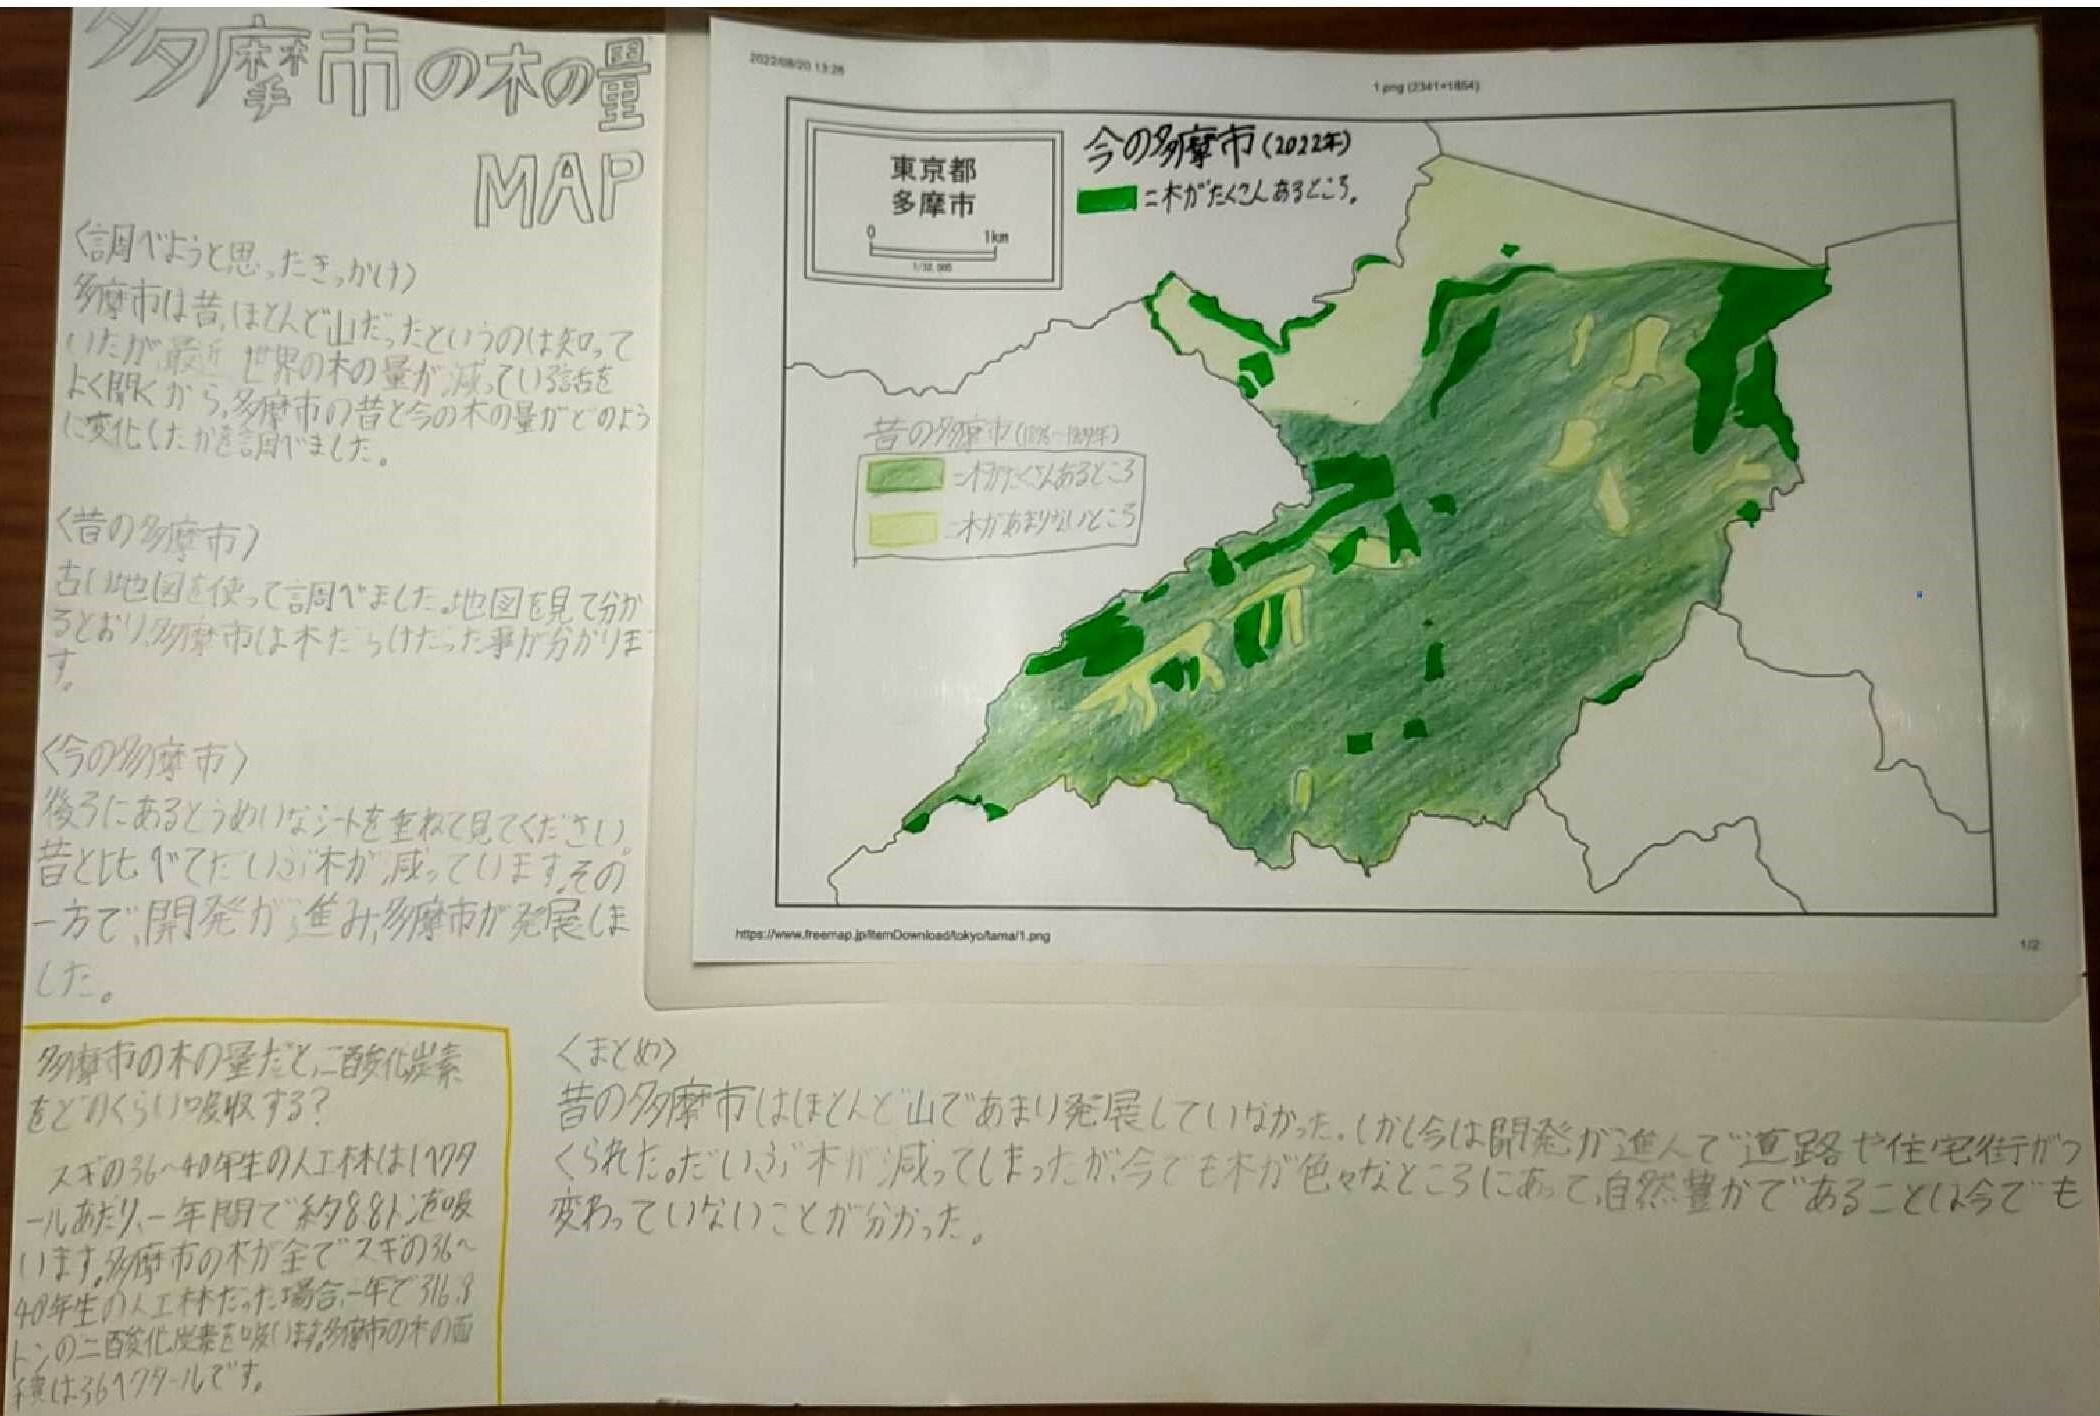 多摩市の木の量
MAP
〈調べようと思ったきっかけ〉
多摩市は昔、ほとんど山だったというのは知って
いたが最近 世界の木の量が減っている話を
よく聞くから、多摩市の昔と今の木の量がどのよう
に変化したかを調べました。
〈昔の多摩市〉
古い地図を使って調べました。地図を見て分か
るとおり、多摩市は木だらけだった事が分かりま
す。
〈今の多摩市〉
後ろにあるとうめいなシートを重ねて見てください。
昔と比べてだいぶ木が減っています。その
一方で、開発が進み、多摩市が発展しま
した。
多摩市の木の量だと、二酸化炭素
をどのくらい吸収する?
スギの36〜40年生の人工林は1ヘクタ
ールあたり、一年間で約8.8トンを吸
います。多摩市の木が全てスギの36〜
40年生の人工林だった場合、一年で316.8
トンの二酸化炭素を吸います。多摩市の木の面
積は36ヘクタールです。
2022/08/20 13:28
1.png (2341×1654)
東京都
多摩市
0 1km
今の多摩市(2022年)
=木がたくさんあるところ。
昔の多摩市
=木がたくさんあるところ
=木があまりないところ
https://www.freemap.jp/itemDownload/tokyo/tama/1.png
1/2
〈まとめ〉
昔の多摩市はほとんど山であまり発展していなかった。しかし今は開発が進んで道路や住宅街がつ
くられた。だいぶ木が減ってしまったが、今でも木が色々なところにあって、自然豊かであることは今でも
変わっていないことが分かった。